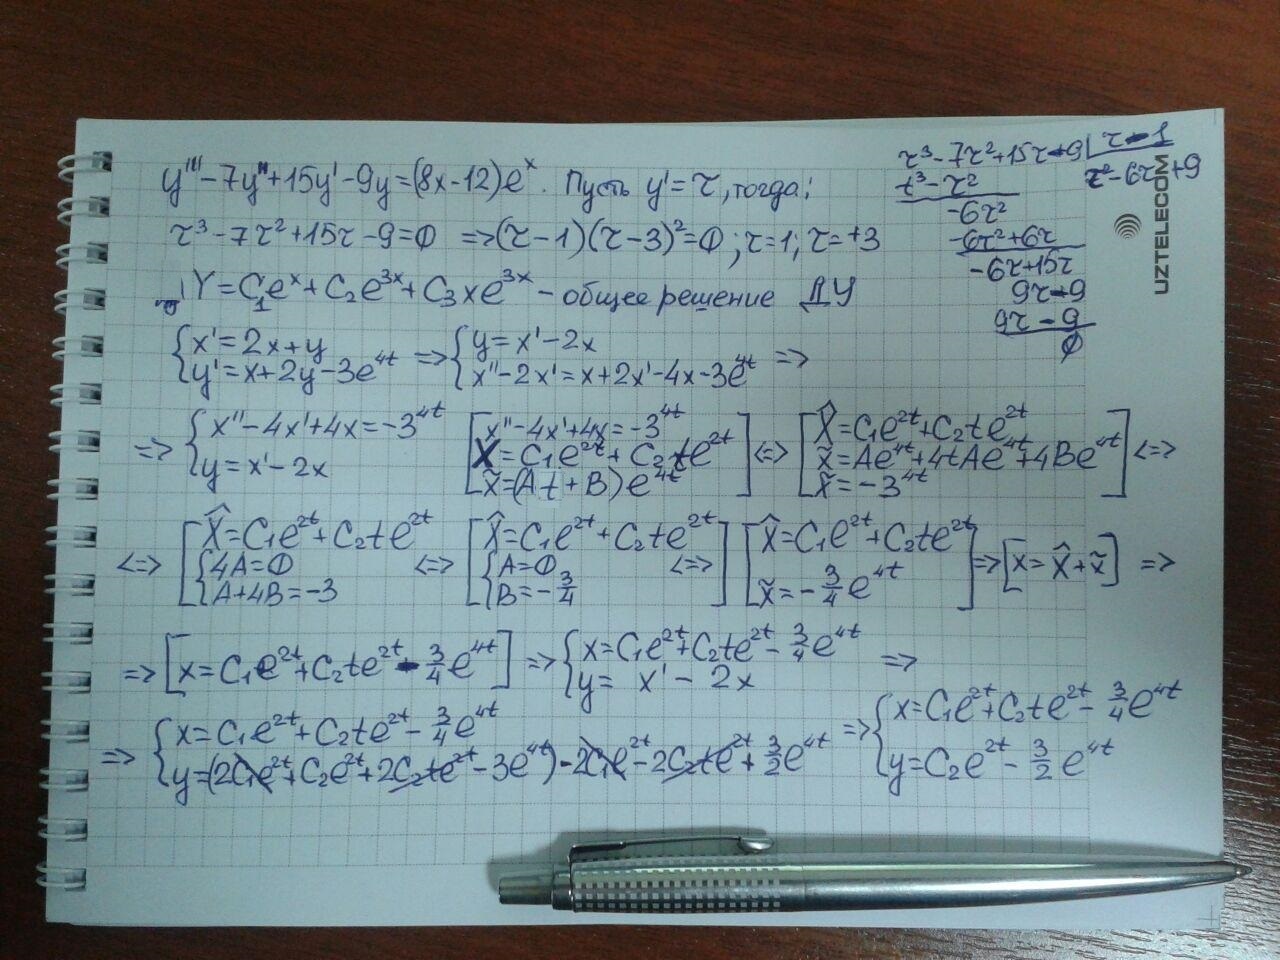 y''' - 7y'' + 15y' - 9y = (8x - 12)e^x. Пусть y' = τ, тогда:
τ³ - 7τ² + 15τ - 9 = 0 => (τ - 1)(τ - 3)² = 0; τ = 1; τ = +3
Y = C₁e^x + C₂e^{3x} + C₃xe^{3x} - общее решение ДУ
τ³ - 7τ² + 15τ - 9 | τ - 1
τ³ - τ² τ² - 6τ + 9
-6τ²
-6τ² + 6τ
-6τ + 15τ
9τ - 9
9τ - 9
0
UZTELECOM
{x' = 2x + y => {y = x' - 2x
{y' = x + 2y - 3e^{4t} {x'' - 2x' = x + 2x' - 4x - 3e^{4t} =>
=> {x'' - 4x' + 4x = -3^{4t} [x'' - 4x' + 4x = -3^{4t} ] <=> [X̂ = C₁e^{2t} + C₂te^{2t} ] <=>
{y = x' - 2x [X = C₁e^{2t} + C₂te^{2t} ] [x̃ = Ae^{4t} + 4tAe^{4t} + 4Be^{4t} ]
[x̃ = (At + B)e^{4t} ] [x̃ = -3^{4t} ]
<=> [X̂ = C₁e^{2t} + C₂te^{2t} <=> [X̂ = C₁e^{2t} + C₂te^{2t} ] <=> [X̂ = C₁e^{2t} + C₂te^{2t} ] => [x = X̂ + x̃] =>
{4A = 0 {A = 0 [x̃ = -3/4 e^{4t} ]
{A + 4B = -3 {B = -3/4
=> [x = C₁e^{2t} + C₂te^{2t} - 3/4 e^{4t}] => {x = C₁e^{2t} + C₂te^{2t} - 3/4 e^{4t} =>
{y = x' - 2x
=> {x = C₁e^{2t} + C₂te^{2t} - 3/4 e^{4t}
{y = (2C₁e^{2t} + C₂e^{2t} + 2C₂te^{2t} - 3e^{4t}) - 2C₁e^{2t} - 2C₂te^{2t} + 3/2 e^{4t}
=> {x = C₁e^{2t} + C₂te^{2t} - 3/4 e^{4t}
{y = C₂e^{2t} - 3/2 e^{4t}